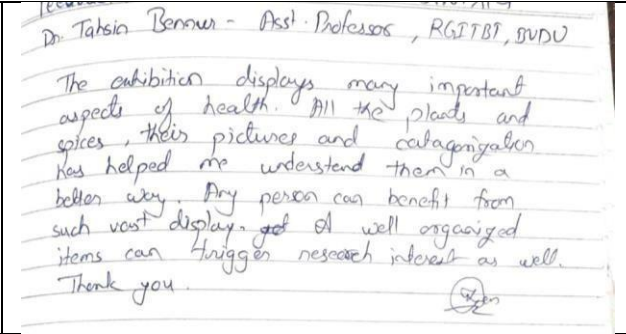 Dr. Tahsin Bennur - Asst. Professor, RGITBT, BVDU
The exhibition displays many important
aspects of health. All the plants and
spices, their pictures and catagorization
has helped me understand them in a
better way. Any person can benefit from
such vast display. A well organized
items can trigger research interest as well.
Thank you.